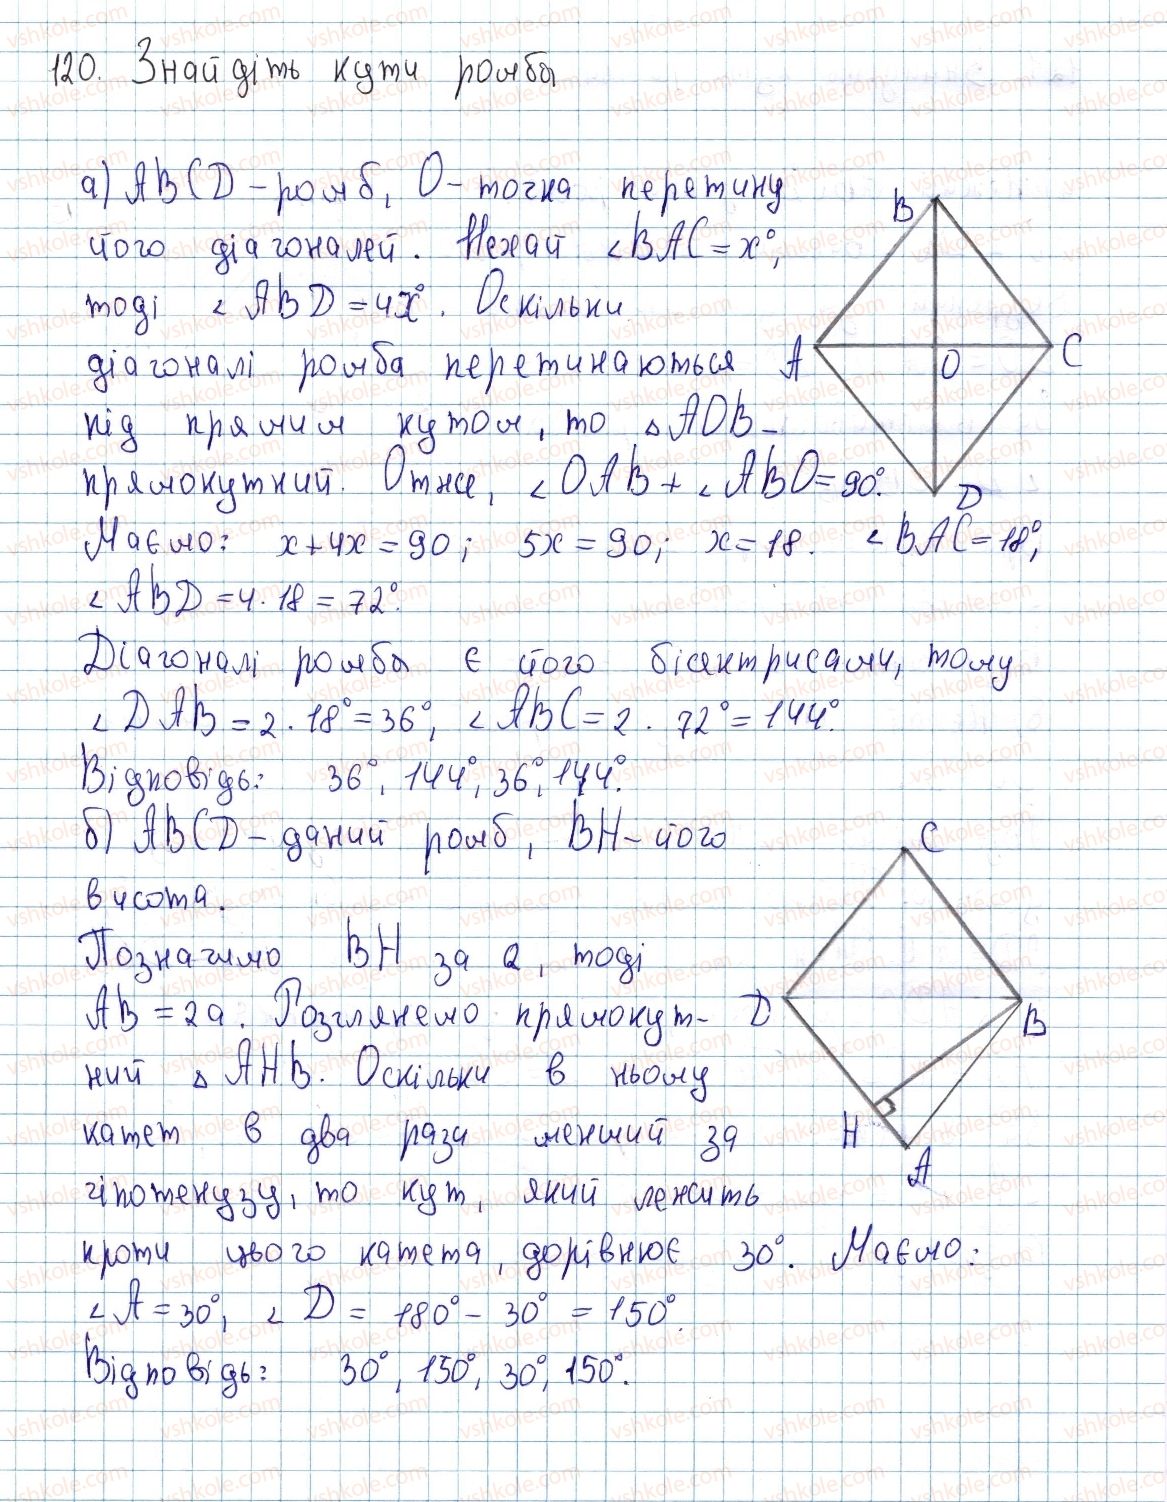 120. Знайдіть кути ромба
а) ABCD - ромб, O - точка перетину
його діагоналей. Нехай ∠BAC = x°,
тоді ∠ABD = 4x°. Оскільки
діагоналі ромба перетинаються
під прямим кутом, то △AOB -
прямокутний. Отже, ∠OAB + ∠ABO = 90°.
Маємо: x + 4x = 90; 5x = 90; x = 18. ∠BAC = 18°,
∠ABD = 4 · 18 = 72°.
Діагоналі ромба є його бісектрисами, тому
∠DAB = 2 · 18° = 36°, ∠ABC = 2 · 72° = 144°.
Відповідь: 36°, 144°, 36°, 144°.
б) ABCD - даний ромб, BH - його
висота.
Позначимо BH за a, тоді
AB = 2a. Розглянемо прямокут-
ний △AHB. Оскільки в ньому
катет в два рази менший за
гіпотенузу, то кут, який лежить
проти цього катета, дорівнює 30°. Маємо:
∠A = 30°, ∠D = 180° - 30° = 150°.
Відповідь: 30°, 150°, 30°, 150°.
B
A
O
C
D
C
D
B
H
A
vshkole.com